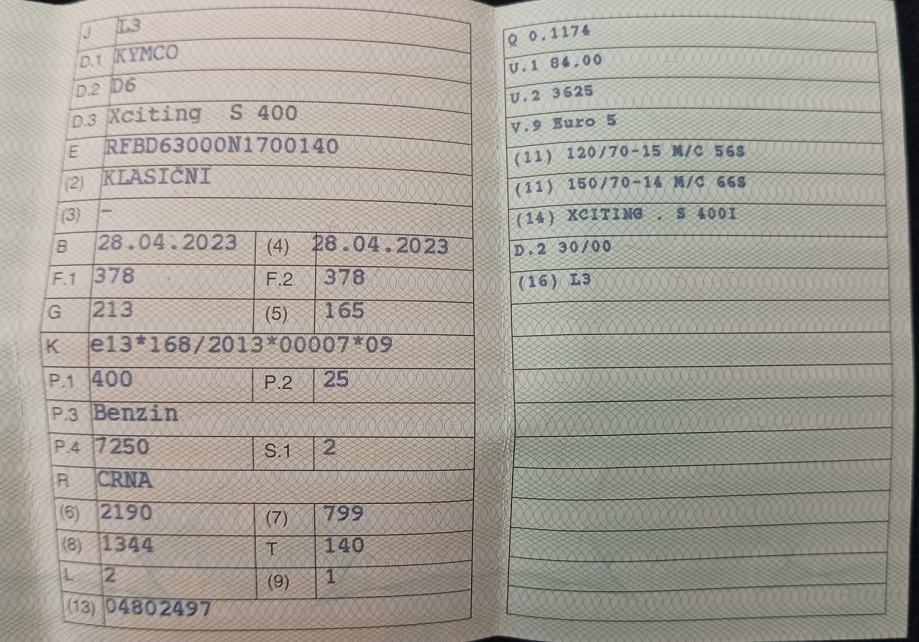 J L3
D.1 KYMCO
D.2 D6
D.3 Xciting S 400
E RFBD63000N1700140
(2) KLASIČNI
(3) –
B 28.04.2023 (4) 28.04.2023
F.1 378 F.2 378
G 213 (5) 165
K e13*168/2013*00007*09
P.1 400 P.2 25
P.3 Benzin
P.4 7250 S.1 2
R CRNA
(6) 2190 (7) 799
(8) 1344 T 140
L 2 (9) 1
(13) 04802497
Q 0.1174
U.1 84.00
U.2 3625
V.9 Euro 5
(11) 120/70-15 M/C 56S
(11) 150/70-14 M/C 66S
(14) XCITING . S 400I
D.2 30/00
(16) L3